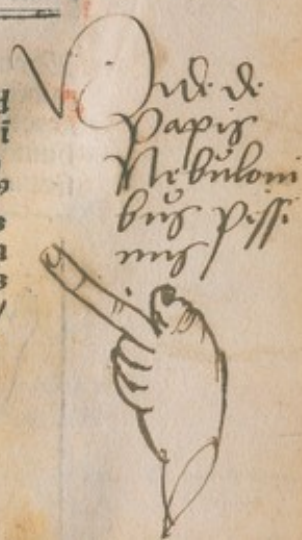 Vide de
Papis
Nebuloni
bus pessi
mis